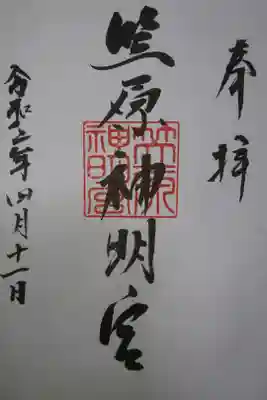 奉拝
笠原神明宮
笠原
神明宮
令和 年四月十一日